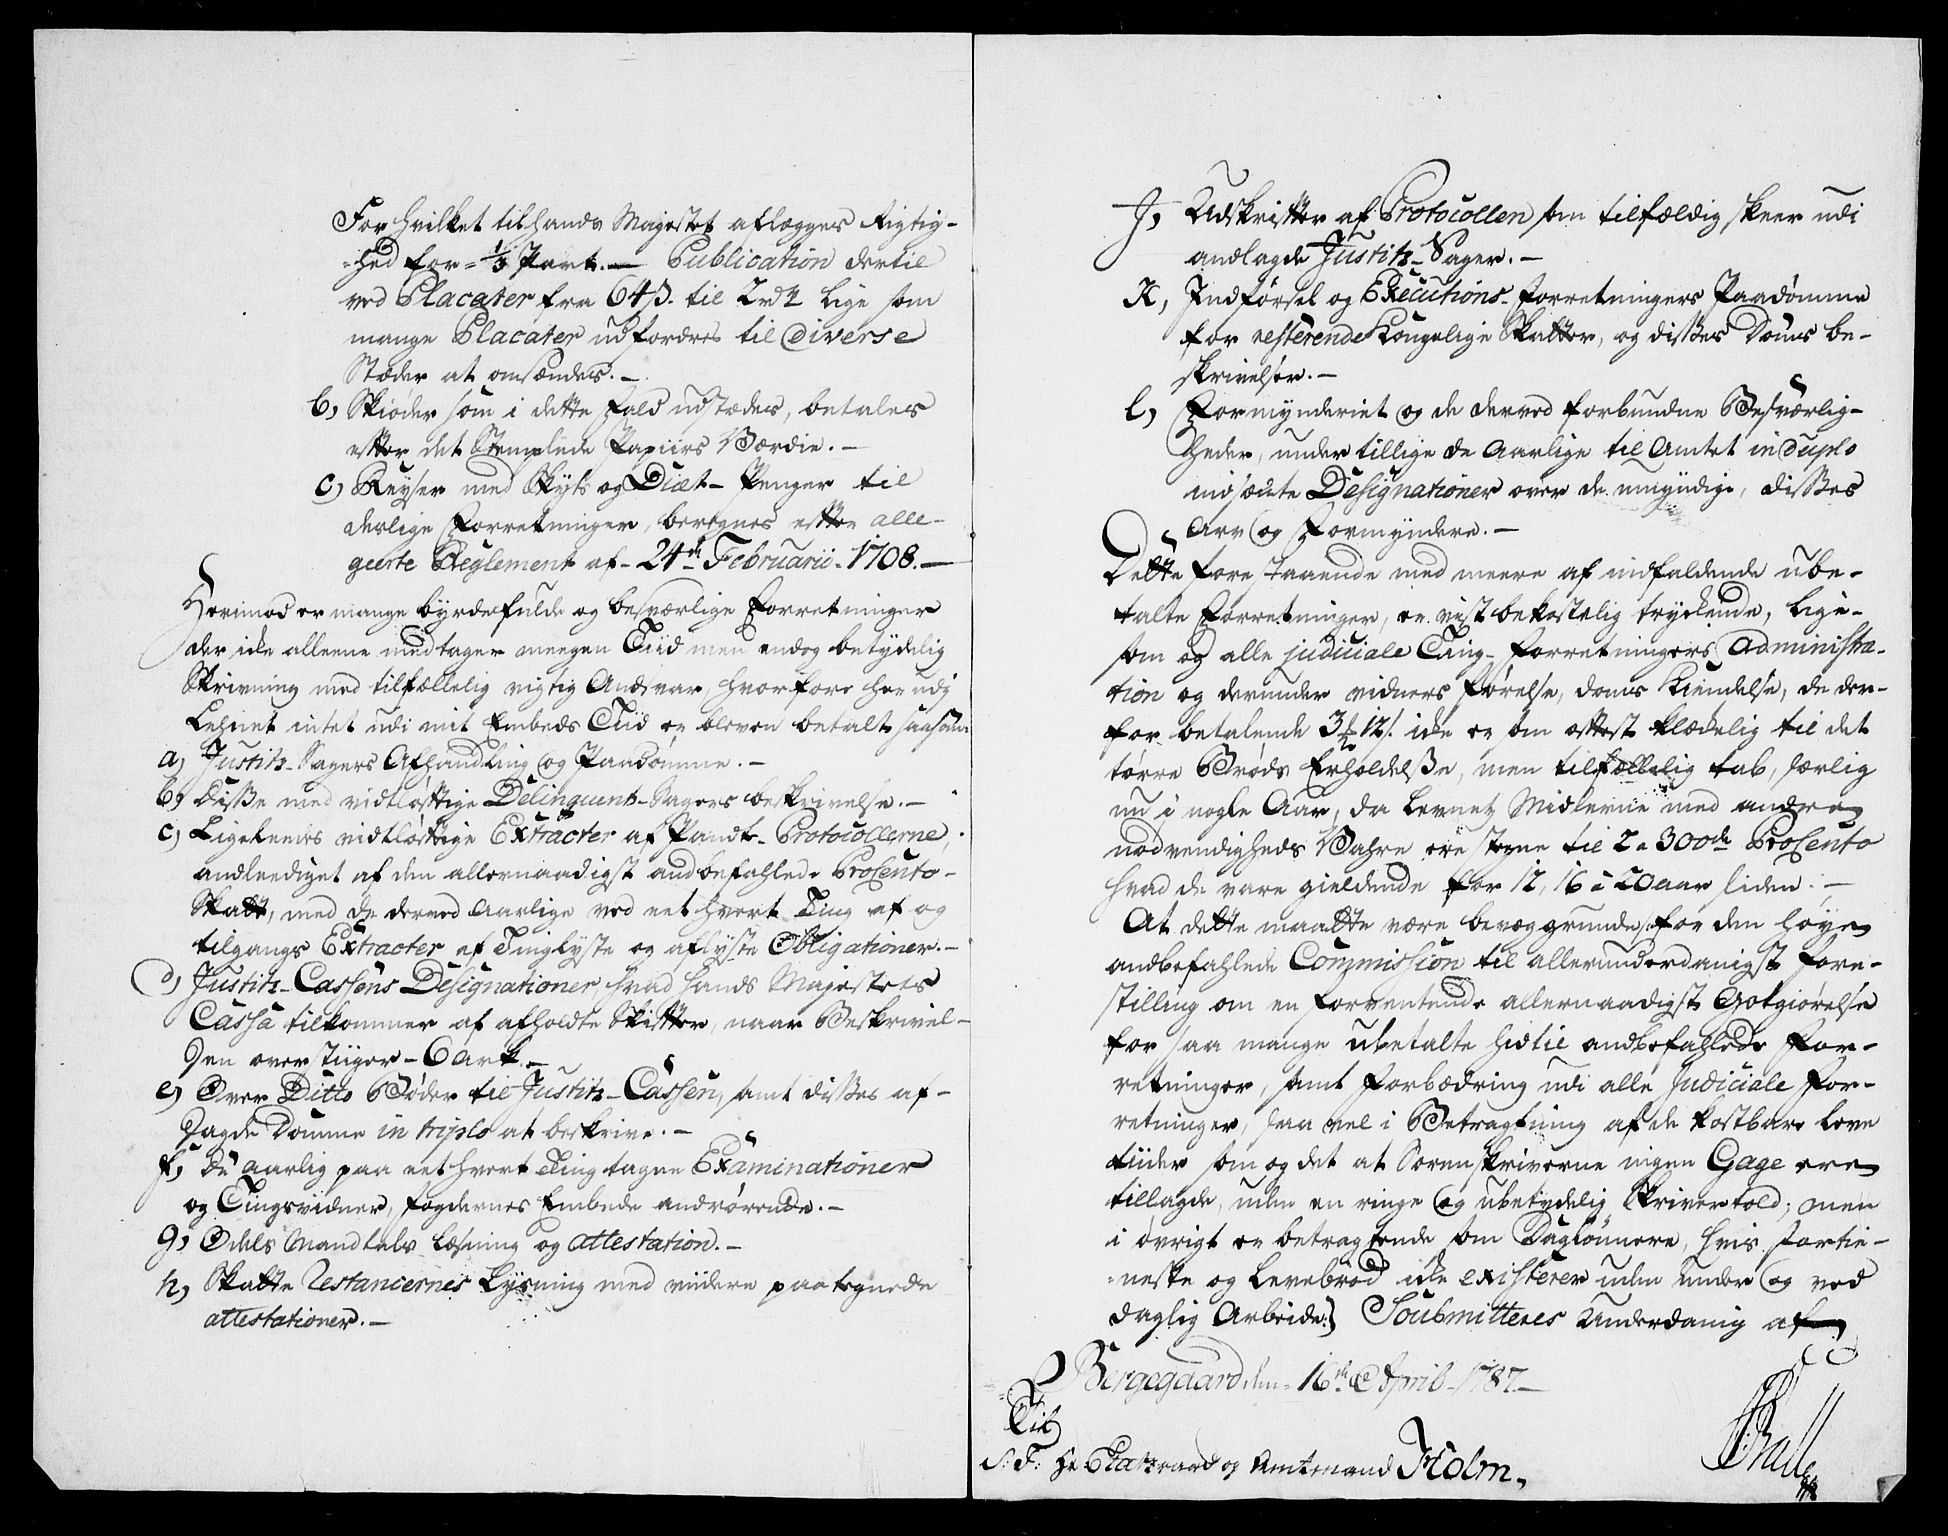 For hvilket til hands Majestet aflægges Rigtig-
=hed for = 1/3 Part.— Publication dertil
ved Placater fra 64 ß. til 2 rdr lige som
mange Placater udfordres til diverse
Stæder at omsændes.—
b, Skiøder som i dette fald udstædes, betales
efter det Stemplede Papiirs Værdie.—
c, Reyser med Skyts og Diæt-Penger til
deslige Forretninger, beregnes efter alle-
geerte Reglement af-24de Februarii-1708.—
Herimod er mange byrdefulde og besværlige Forretninger
der icke alleene medtager meegen Tiid men endog betydelig
Skrivning med tilfællelig vigtig Andsvar, hvorfore her udj
Lehnet intet udi mit Embeds Tiid er bleven betalt saasom
a, Justitz-Sagers Afhandling og Paadømme.—
b, Disse med vidtløftige Delinquent-Sagers beskrivelse.—
c, Ligeleedes vidtløftige Extracter af Pandt-Protocollerne,
andleediget af den allernaadigst andbefahlede Prosento-
Skatt, med de derved Aarlige ved eet hvert Ting af og
tilgangs Extracter af Tinglyste og aflyste Obligationer.—
d, Justitz-Cassens Designationer, hvad hands Majestets
Cassa tilkommer af afholdte Skifter, naar Beskrivel-
sen overstiiger-6 Ark.—
e, Over Ditto Bøder til Justitz-Cassen, samt disses af-
sagde Domme in triplo at beskrive.—
f, De aarlig paa eet hvert Ting tagne Examinationer
og Tingsvidner, fogdernes Embede andrørende.—
g, Odels Mandtals læsning og attestation.—
h, Skatte Restancernes Lysning med viidere paategnede
attestationer.—
J, Udskrifter af Protocollen som tilfældig skeer udi
andlagde Justitz-Sager.—
K, Indførsel og Executions-forretningers Paadømme
for resterende Kongelige Skatter, og disses Doms be-
skrivelser.—
l, Formynderiet og de derved forbundne Besværlig-
heder, under tillige de Aarlige til Amtet in duplo
indsændte Designationer over de umyndige, disses
Arv og Formyndere.—
Dette forestaaende med meere af indfaldende ube-
talte Forretninger, er vist bekostelig tryckende, lige-
som og alle judiciale Ting-forretningers Administra-
tion og derunder vidners førelse, doms Kiendelse, de der-
for betalende 3 12 ß. icke er som oftest klædelig til det
tørre Brøds Erholdelse, men tilfællelig tab, særlig
nu i nogle Aar, da levnets Midlerne med andre
nødvendigheds Vahre ere steegne til 2 a 300de Prosento
hvad de vare gieldende for 12, 16 à 20 aar siden.—
At dette maatte være bevæggrunde for den høye
andbefahlede Commission til allerunderdanigst fore-
stilling om en forventende allernaadigst Gotgiørelse
for saa mange ubetalte hidtil andbefahlede for-
retninger, samt forbædring udi alle Judiciale for-
retninger, saa vel i Betragtning af de kostbare leve
tiider som og det at Sorenskriverne ingen Gage ere
tillagde, uden en ringe og ubetydelig Skrivertold; men
i øvrigt er betragtende som Daglønnere, hvis fortie-
=neste og Levebrød icke existerer uden under og ved
daglig Arbeide.) Soubmitteres Underdanig af
Bergegaard den-16de April-1787.—
Til
S: T: Hr Etatzraad og Amtmand Holm.